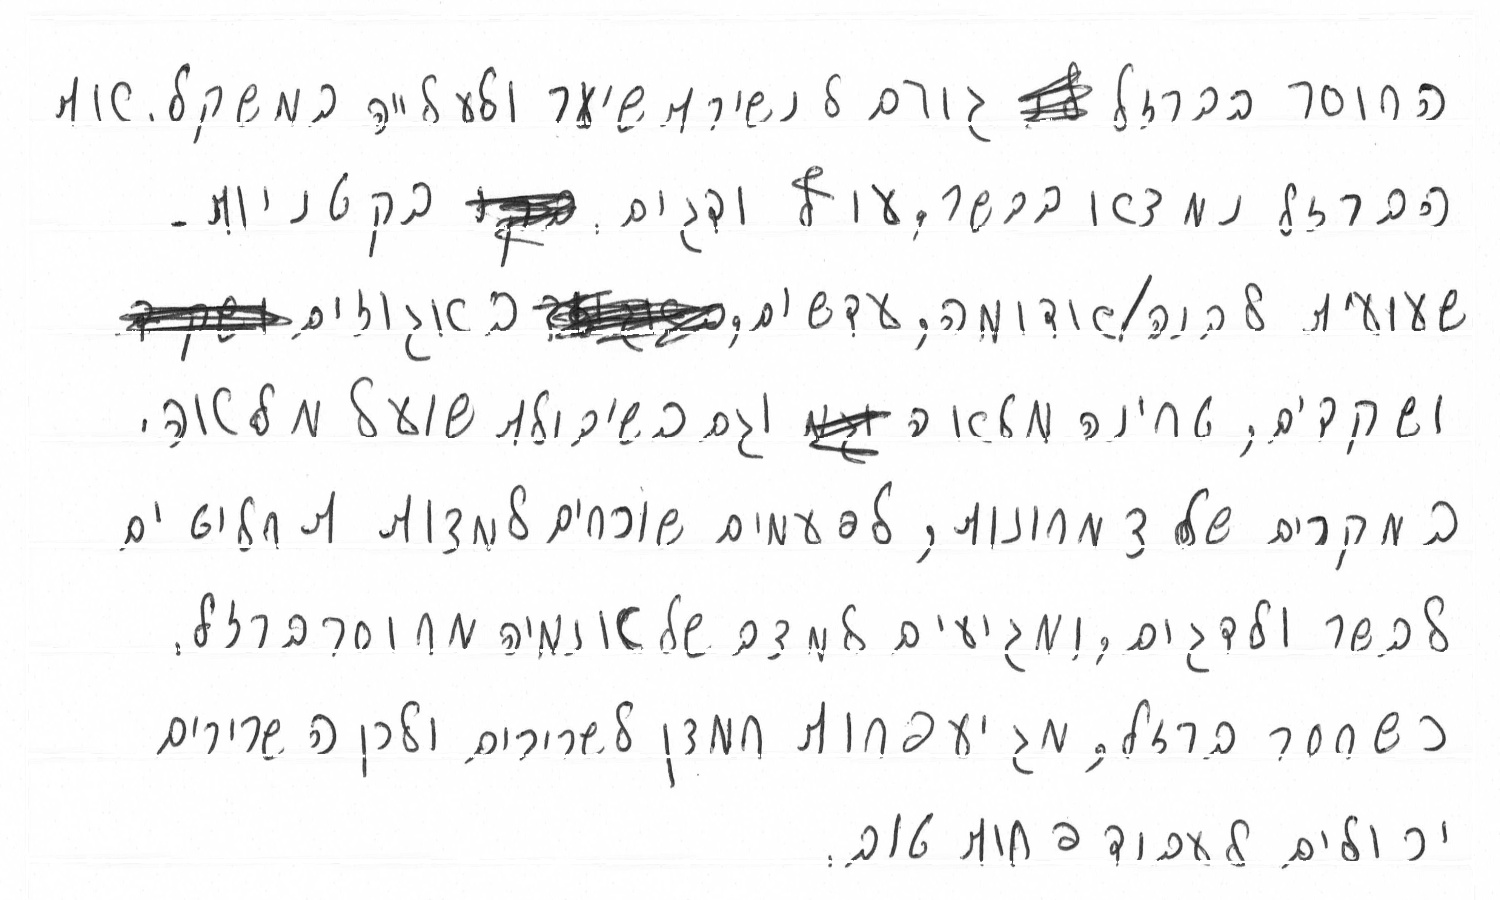 החוסר בברזל גורם לנשירת שיער ולעלייה במשקל. את
הברזל נמצאו בבשר, עוף ודגים. בקטניות -
שעועית לבנה/אדומה, עדשים, באגוזים
ושקדים, טחינה מלאה וגם בשיבולת שועל מלאה.
במקרים של צמחונות, לפעמים שוכחים למצות תחליטים
לבשר ולדגים, ומגיעים למצב של אנמיה מחוסר ברזל.
כשחסר ברזל, מגיע פחות חמצן לשרירים ולכן השרירים
יכולים לעבוד פחות טוב.